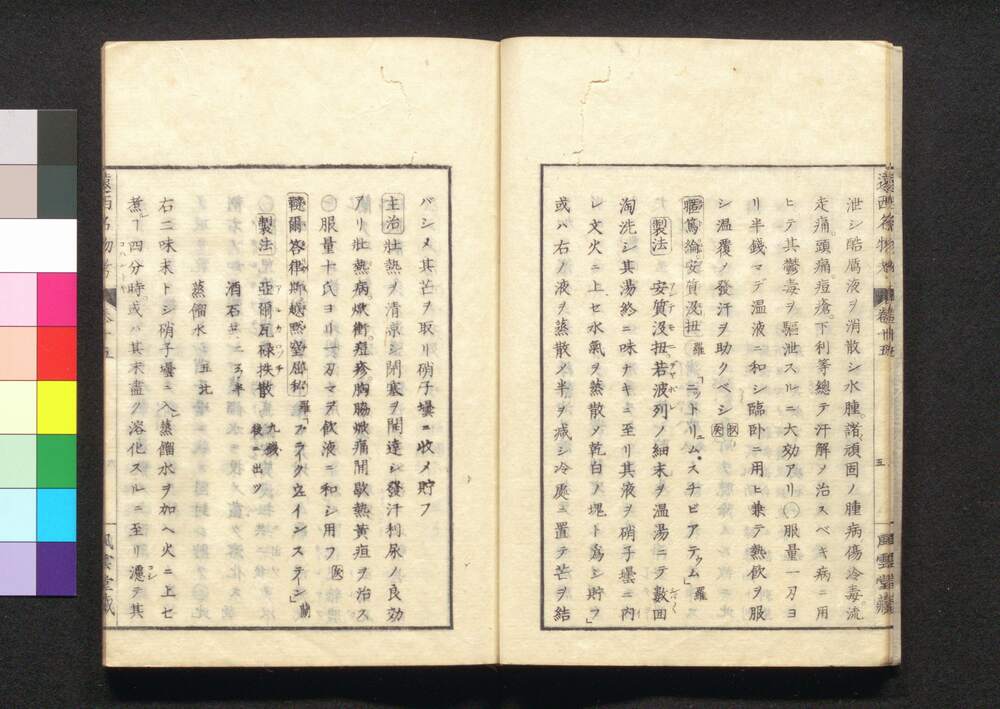 泄シ酷厲液ヲ消散シ水腫諸頑固ノ腫病傷冷毒流
走痛頭痛痘瘡下利等總テ汗解ノ治スベキ病ニ用
ヒテ其鬱毒ヲ驅泄スルニ大効アリ 服量一刃ヨ
リ半錢マデ温液ニ和シ臨卧ニ用ヒ兼テ熱飲ヲ服
シ温覆ノ發汗ヲ助クベシ
安質没扭 羅 ニットリュム スチビアテウム 羅
製法 安質没扭若波列ノ細末ヲ温湯ニテ數回
淘洗シ其湯終ニ味ナキニ至リ其液ヲ硝子壜ニ内
レ文火ニ上セ水氣ヲ蒸散ノ乾白ノ塊ト爲シ貯フ
或ハ右ノ液ヲ蒸散ノ半ヲ减シ冷處ニ置テ芒ヲ結
バシメ其芒ヲ取リ硝子壜ニ收メ貯フ
主治 壮熱ヲ清凉シ閉塞ヲ開達シ發汗利尿ノ良効
アリ壮熱病焮衝痘疹胸脇焮痛間歇熱黄疸ヲ治ス
服量十氏ヨリ一刃マデヲ飲液ニ和シ用フ
羅 ブラアクヱインステーン 蘭
製法 亞爾瓦碌挨散 九錢 後ニ出ツ
酒石 二 半
蒸餾水 五
右二味末トシ硝子壜ニ入レ蒸餾水ヲ加ヘ火ニ上セ
煮 四分時或ハ其末盡ク溶化スルニ至リ濾テ其
遠西名物考
五
風雲堂藏